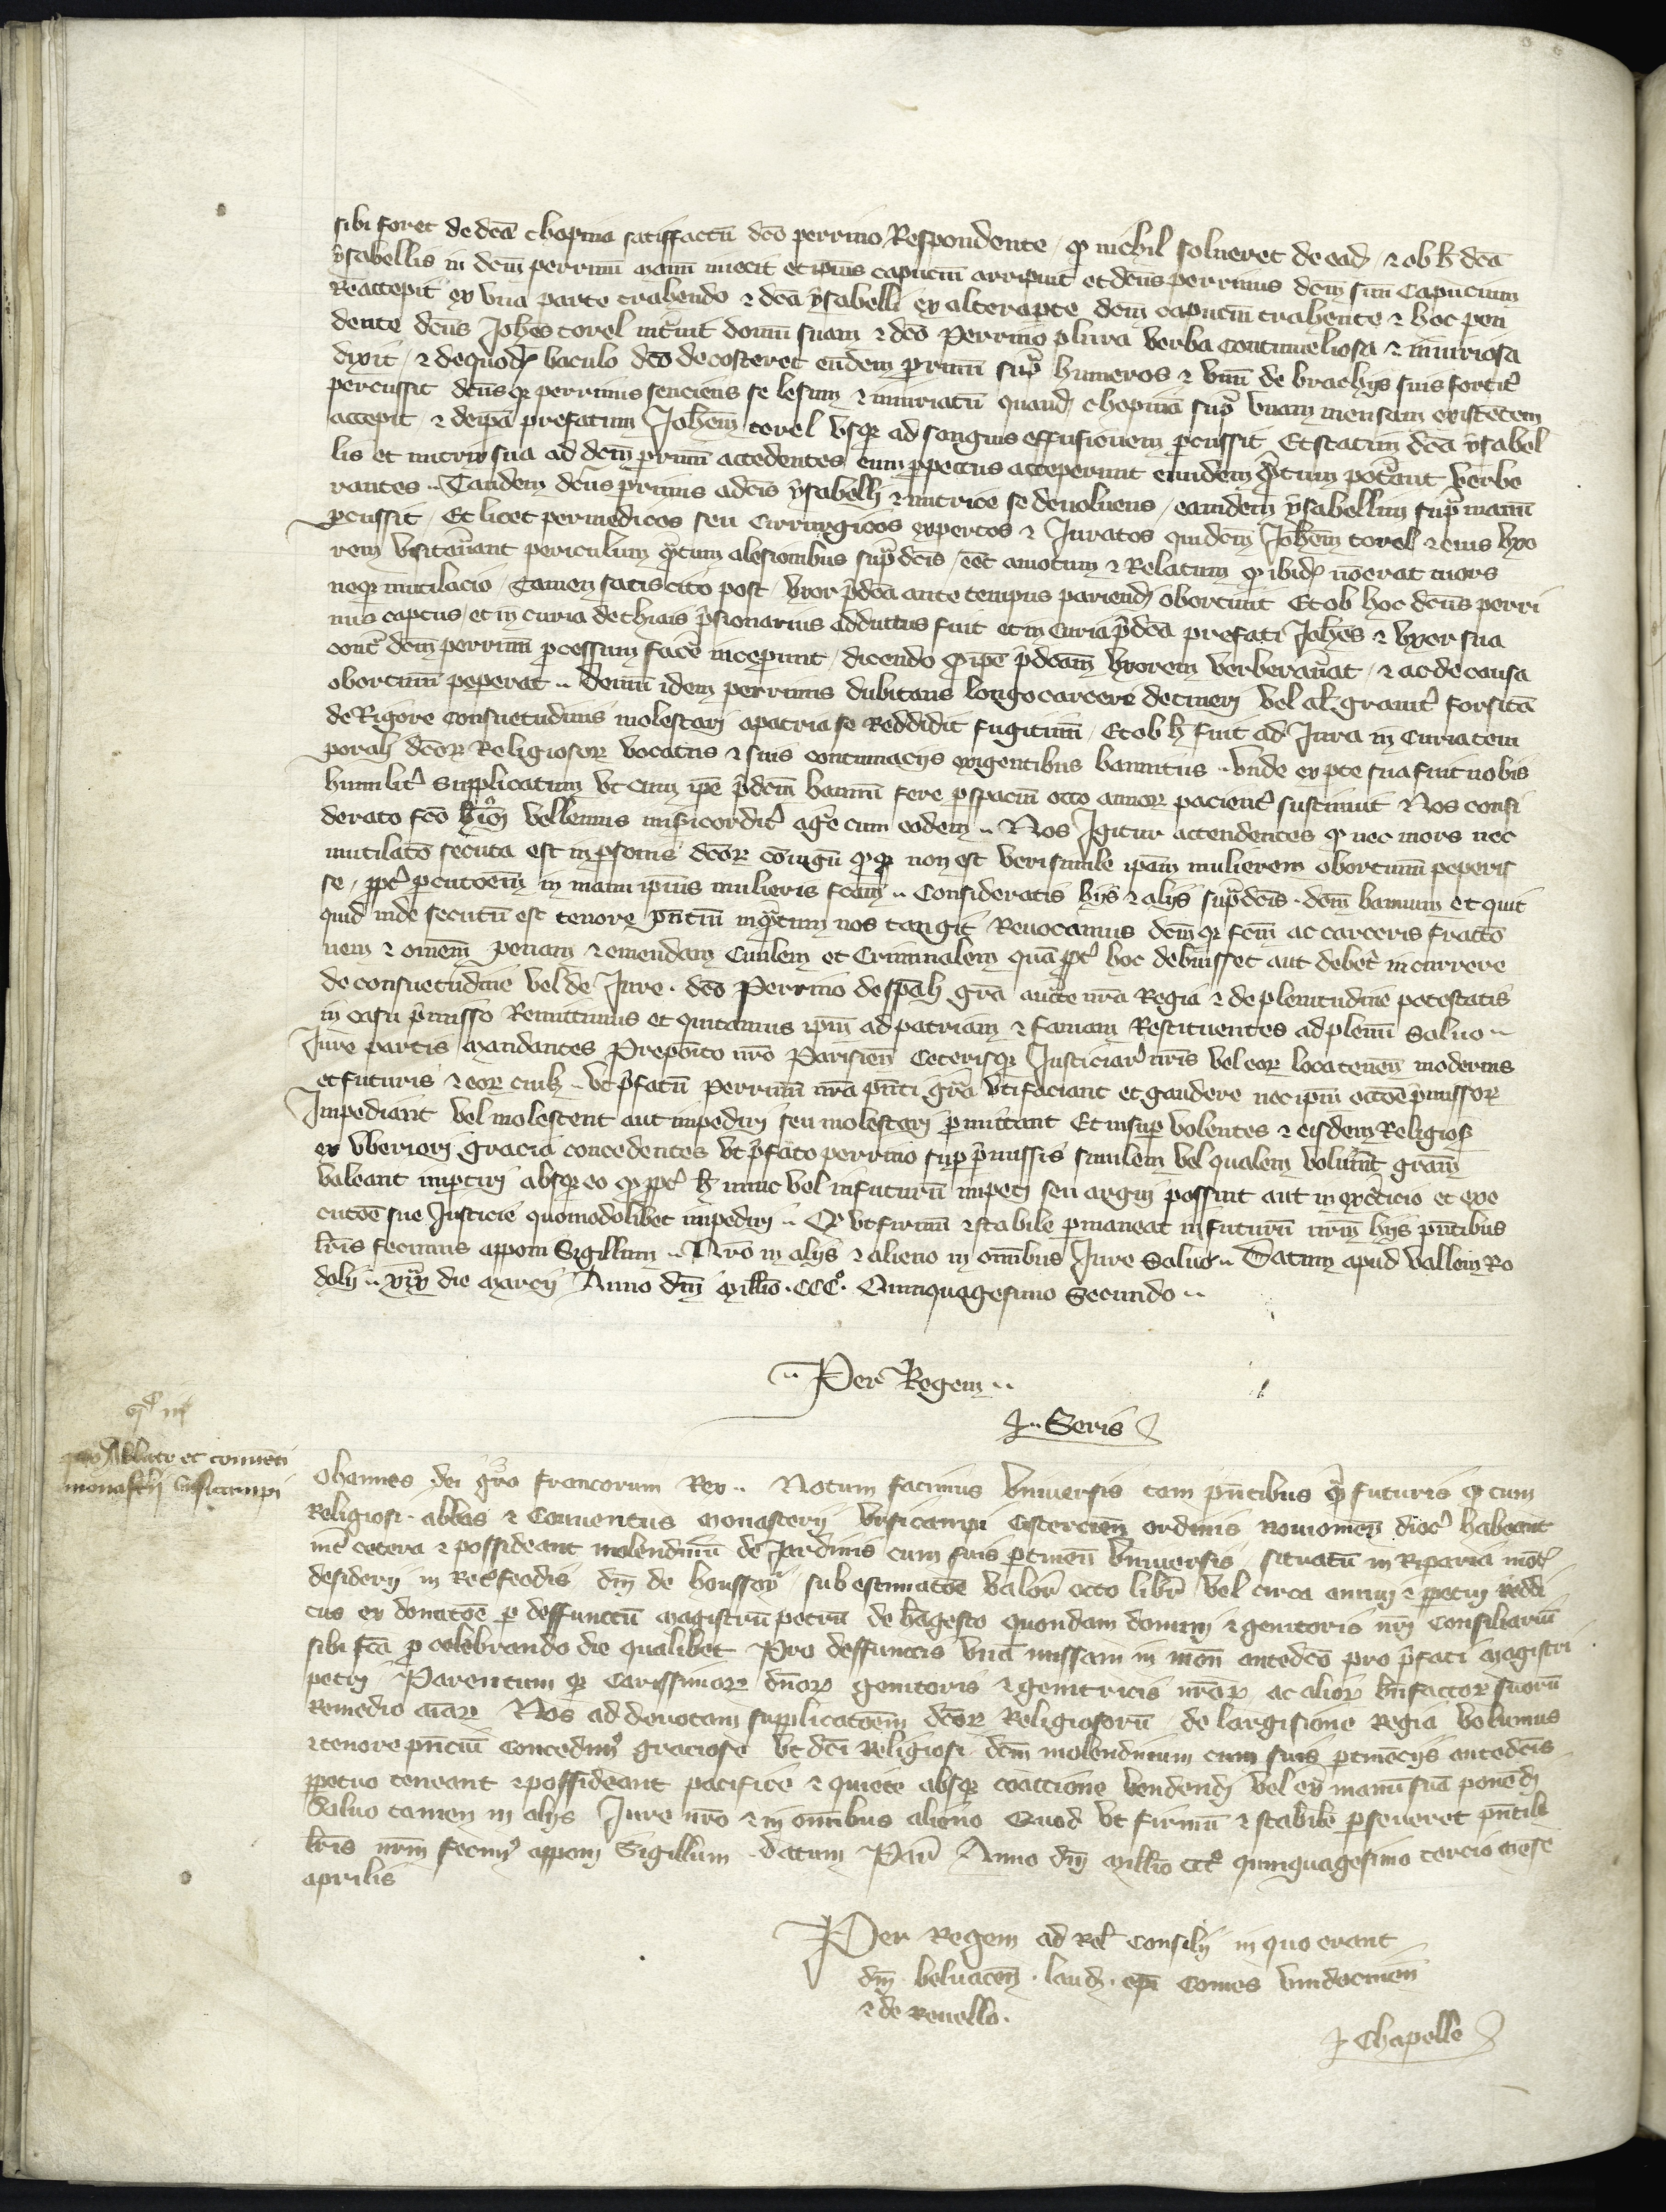 sibi foret de dca chopina satiffactu dco perrino Respondente / q nichil solueret de ead / & ob h dca
ysabellis in dcm perrinu manu iniecit et ipius capuciu arripuit et dcus perrinus dcm suu Capucium
Reaccepit ex vna parte trahendo & dca ysabelli ex altera pte dcm capuciu trahente & hoc pen
dente dcus Johes corel intuit domu suam & dco Perrino plura verba contumeliosa & iniuriosa
dixit / & de quod baculo dco de costeret eudem prinu supra humeros & vnu de brachijs suis fortit
percussit dcus q perrinus senciens se lesum & iniuriatu quand chopina supra vnam mensam existetem
accepit & de ipa prefatum Johem corel vsq ad sanguis effusionem pcussit Et statim dca ysabel
lis et nutrix sua ad dcm prinu accedentes eum p pectus acceperunt eundem qtum potant verbe
rantes .. Tandem dcus prinus ad cis ysabelli & nutrice se deuoluens / eamdem ysabellim supra manu
pcussit / Et licet per medicos seu Cirrurgicos expertos & Juratos quidem Johem corel & eius vxo
rem visitauant periculum qtum a lesionibus supra dcis / eet amotum & Relatum q ibid no erat mors
neq mutilacio / Tamen satis cito post / vxor pdca ante tempus pariend obortiuit Et ob hoc dcus perri
nus captus / et in curia de thiais prisionarius adductus fuit et in curia pdca prefati Johes & vxor sua
cont dcm perrinu pcessum face inceperunt / dicendo q ipe pdcam vxorem verberauat / & ac de causa
obortiuu peperat .. demu idem perrinus dubitans longo carcere detineri vel al grauit forsita
de Rigore consuetudinis molestari a patria se Reddidit fugitiuu / Et ob h fuit ad Jura in Curia tem
porali dcor Religiosor vocatus & suis contumacijs exigentibus bannitus .. vnde ex pte sua fuit nobis
humilit supplicatum vt cum ipe pdcm bannu fere p spaciu octo annor pacient sustinuit & Nos consi
derato fco hmoi vellemus misicordit age cum eodem .. Nos Igitur attendentes q nec mors nec
mutilato secuta est in psonis dcor coiugu q q non est verisimile ipam mulierem obortiuu peperis
se / ppt pcutoem in manu ipius mulieris fcam .. Consideratis hijs & alijs supra dcis . dcm bannum et quit
quid inde secutu est tenore pntiu inqtum nos tangit Reuocamus dcm q fcm ac carceris fracto
nem & omem penam & emendam Ciuilem et Criminalem qua ppt hoc debuisset aut debet incurrere
de consuetudine vel de Jure . dco Perrino de spali gra aucte nra Regia & de plenitudine potestatis
in casu pmisso Remittimus et quitamus ipm ad patriam & famam Restituentes ad plenu Saluo ..
Jure partis Mandantes Preposito nro Parisien Ceterisq Justiciar nris vel eor locatenen modernis
et futuris & eor cuil .. vt pfatu perrinu nra pnti gra vti faciant et gaudere nec ipm occoe pmissor
Impediant vel molestent aut impediri seu molestari pmittant Et insup volentes & eisdem Religios
ex vberiori gracia concedentes vt pfato perrino sup pmissis similem vel qualem voluint gram
valeant impetiri absq eo q ppt h nunc vel in futuru impeti seu argui possint aut in exercicio et exe
cutoe sue Justicie quomodolibet impediri .. Q vt firmu & stabile pmaneat in futuru nrm hijs pntibus
lris fecimus apponi Sigillum .. Nro in alijs & alieno in omibus Jure Saluo .. Datum apud vallem Ro
dolij .. die Marcij Anno dni Millio . CCC° . Quinquagesimo Secundo ..
.. Per Regem ..
J .. Seris
pro Abbate et conuetu
monasterij vrsicampi
Ohannes dei gra francorum Rex .. Notum facimus vniuersis tam pntibus q futuris q cum
Religiosi . abbas & Conuentus Monasterij vrsicampi Cistercien ordinis Nouiomen dioc habeant
int cetera & possideant molendinu de Jardinis cum suis ptinen vniuersis / situatu in Riparia mot
desiderij in Retfeodis dni de houssoy sub estimatoe valor octo libr vel circa annui & ppetui reddi
tus ex donatoe p deffunctu Magistru petru de hagesto quondam domini & genitoris nri Consiliariu
sibi fca p celebrando die qualibet Pro deffunctis vna missam in mon antedco pro pfati Magistri
petri Parentum q Carissimor dnor genitoris & genitricis nror ac alior bnfactor suoru
Remedio aiar Nos ad deuotam supplicatoem dcor Religiosoru de largisione Regia volumus
& tenore pnciu Concedim graciose vt dci Religiosi dcm molendinum cum suis ptinecijs antedcis
ppetuo teneant & possideant pacifice & quiete absq coaccione vendendi vel ex manu sua ponedi
Saluo tamen in alijs Jure nro & in omibus alieno Quod vt firmu & stabile pseueret pntib
lris nrm fecim apponi Sigillum . Datum Par Anno dni Millio ccc° quinquagesimo tercio mese
aprilis
Per Regem ad Rel Consilij in quo erant
dni beluacen . laud . epi Comes vindocinen
& de Reuello .
J Chapelle